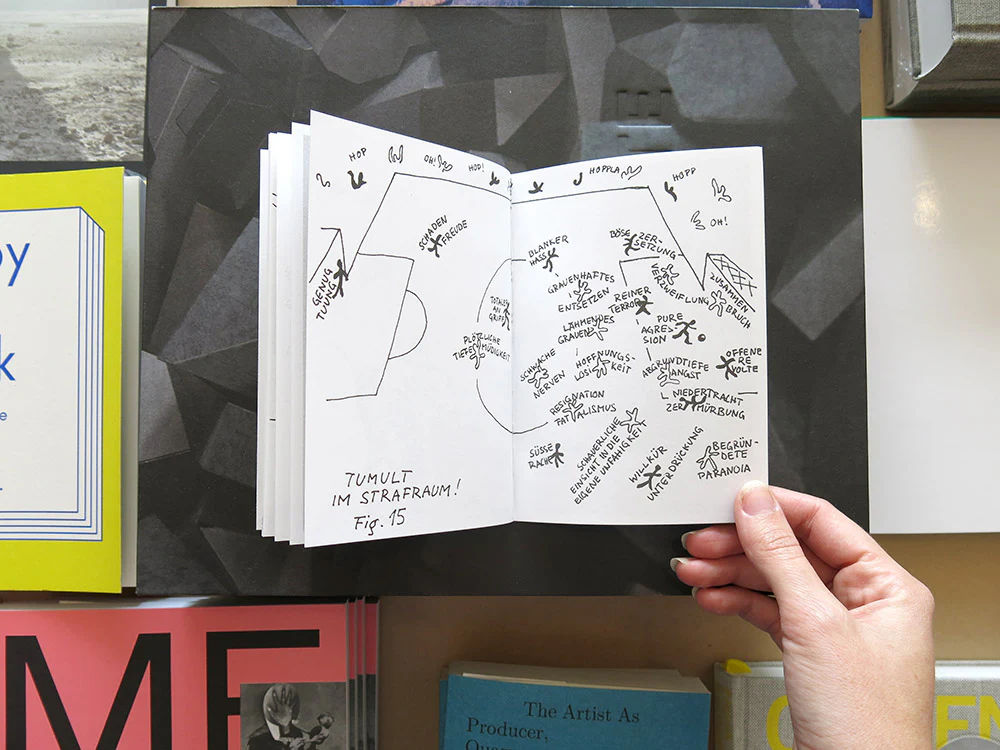 HOP
OH!
HOP!
HOPPLA
HOPP
OH!
SCHADEN
FREUDE
GENUG
TUUNG
TOTALER
AN
GRIFF
PLÖTZLICHE
TIEFE MÜDIGKEIT
BLANKER
HASS
BÖSE ZER-
SETZUNG
GRAUENHAFTES
ENTSETZEN
VERZWEIFLUNG
ZUSAMMEN
BRUCH
REINER
TERROR
LÄHMENDES
GRAUEN
PURE
AGRES-
SION
SCHWACHE
NERVEN
HOFFNUNGS-
LOSIGKEIT
ABGRUNDTIEFE
ANGST
OFFENE
RE
VOLTE
RESIGNATION
FATALISMUS
NIEDERTRACHT
ZERMÜRBUNG
SÜSSE
RACHE
SCHAUERLICHE
EINSICHT IN DIE
EIGENE UNFÄHIGKEIT
WILLKÜR
UNTERDRÜCKUNG
BEGRÜN-
DETE
PARANOIA
TUMULT
IM STRAFRAUM!
Fig. 15
ME
The Artist As
Producer,